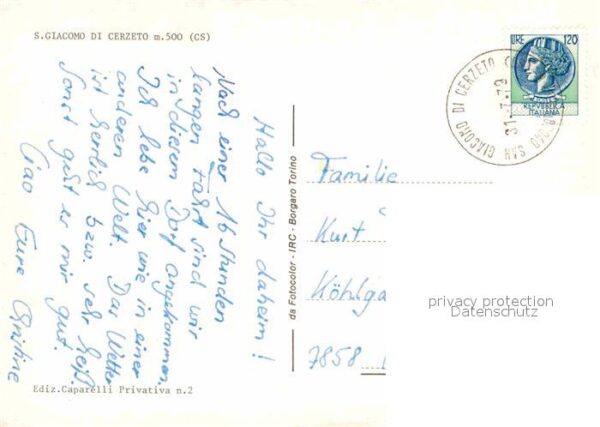 S.GIACOMO DI CERZETO m.500 (CS)
Hallo Ihr daheim!
Nach einer 16 Stunden
langen Fahrt sind wir
in diesem Dorf angekommen.
Ich lebe hier wie in einer
anderen Welt. Das Wetter
ist herrlich bzw. sehr heiß.
Sonst geht es mir gut.
Ciao Eure Christine
Ediz.Caparelli Privativa n.2
da Fotocolor - IRC - Borgaro Torino
LIRE 120
REPVBBLICA
ITALIANA
GIACOMO DI CERZETO
31-7-79
SAN
Familie
Kurt
Köhlga
7858
privacy protection
Datenschutz